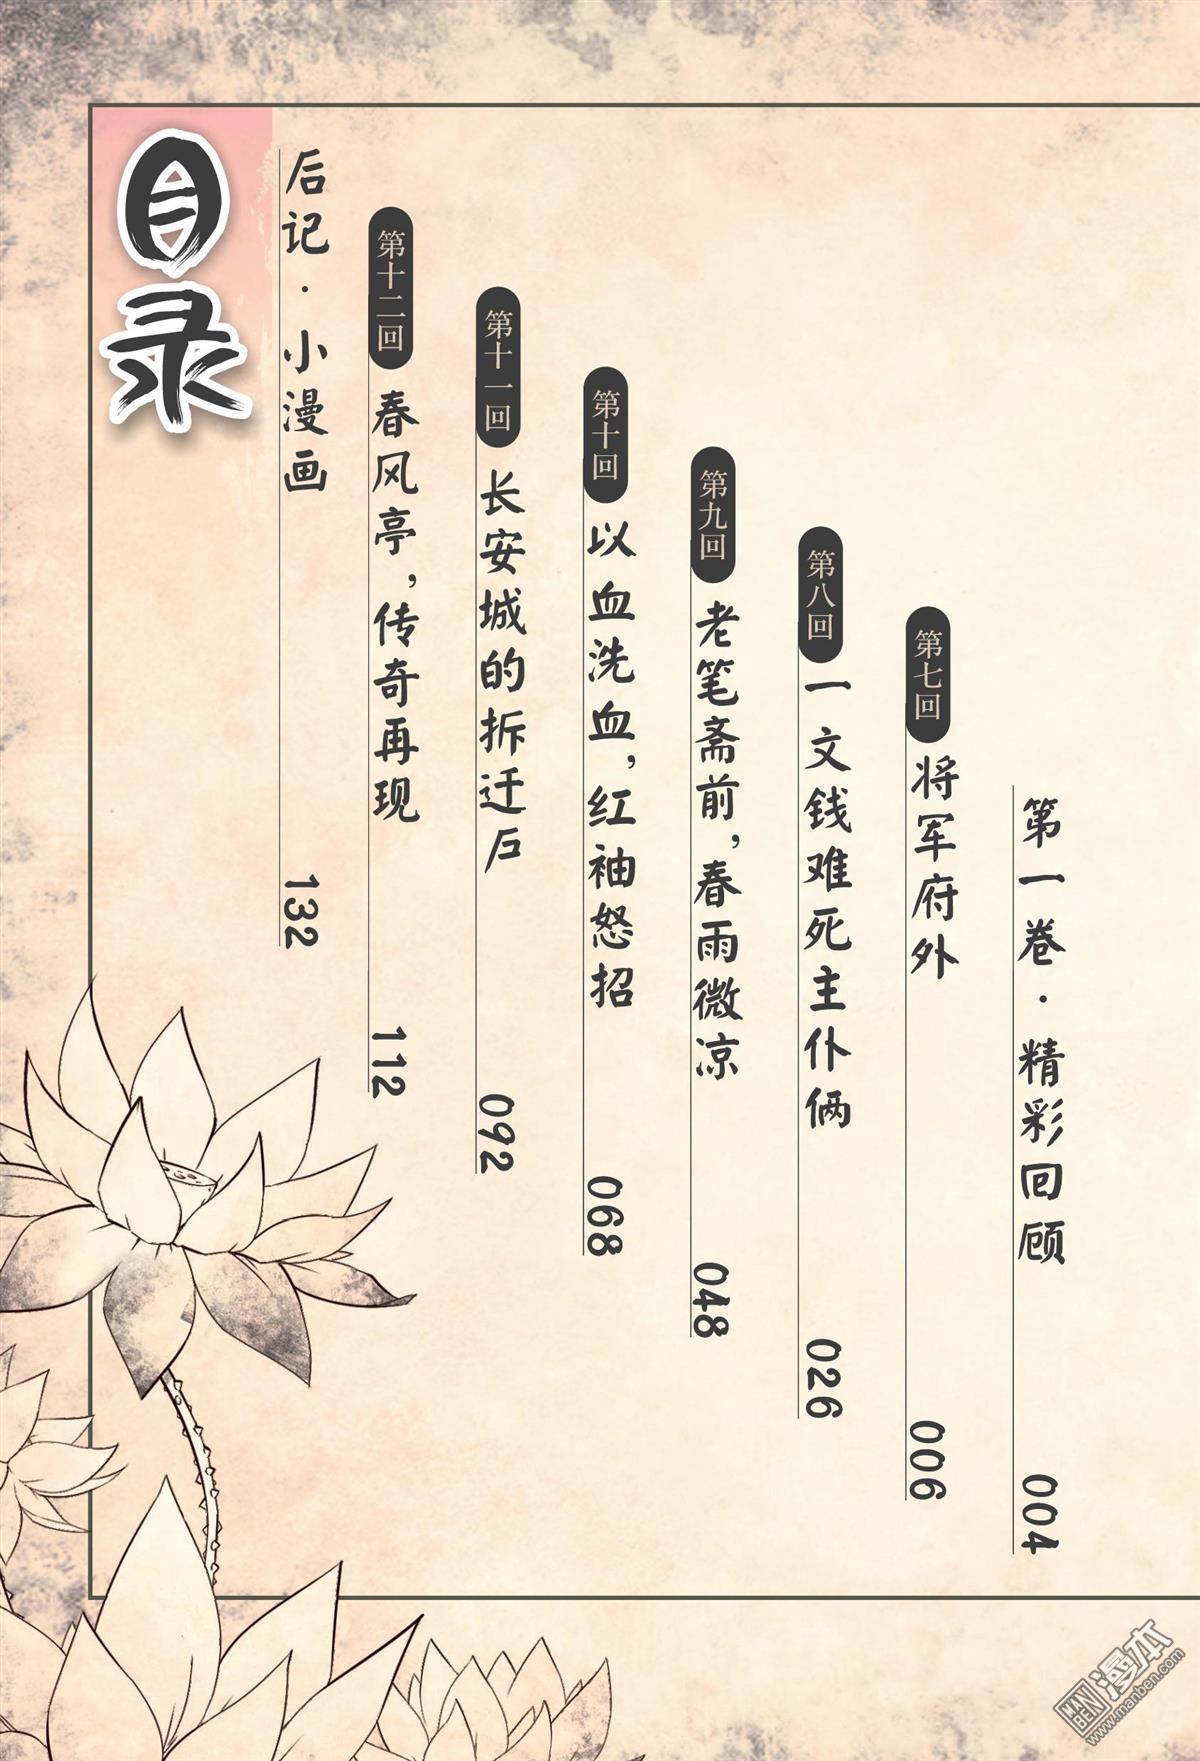 目录
第一卷·精彩回顾 004
第七回 将军府外 006
第八回 一文钱难死主仆俩 026
第九回 老笔斋前，春雨微凉 048
第十回 以血洗血，红袖怒招 068
第十一回 长安城的拆迁户 092
第十二回 春风亭，传奇再现 112
后记·小漫画 132
MAN BEN 漫本
www.manben.com